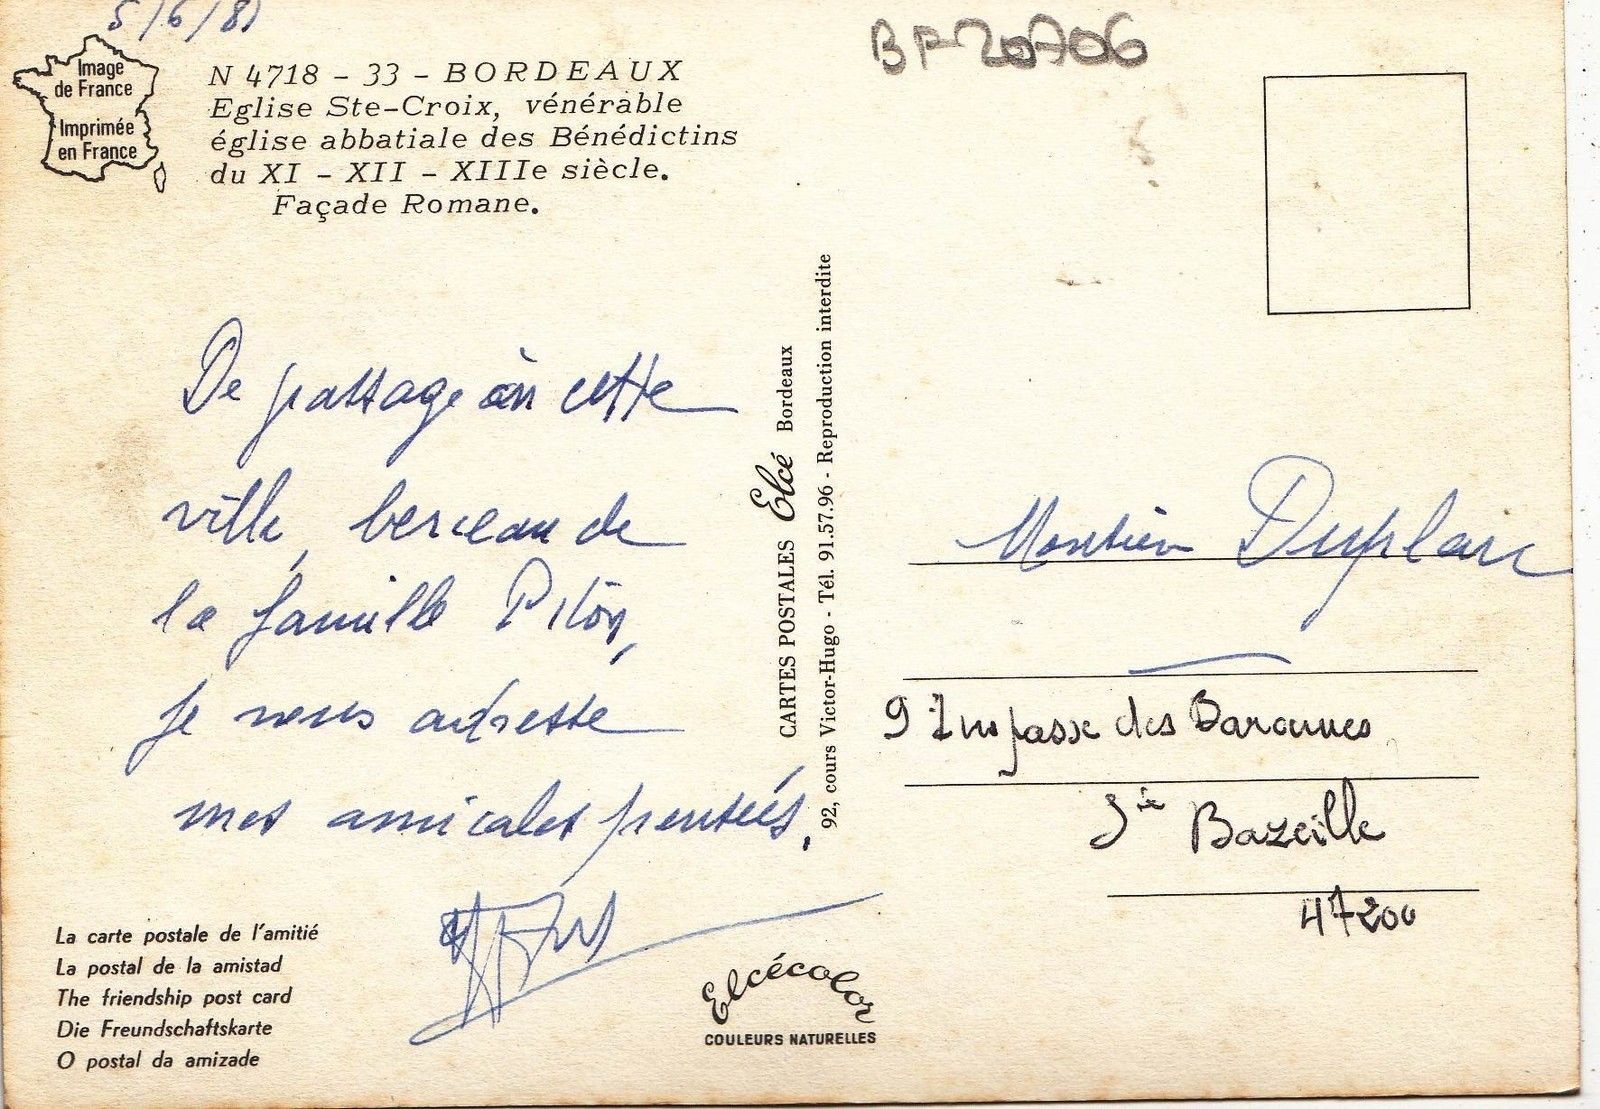 5/6/81
BF20706
Image
de France
Imprimée
en France
N 4718 - 33 - BORDEAUX
Eglise Ste-Croix, vénérable
église abbatiale des Bénédictins
du XI - XII - XIIIe siècle.
Façade Romane.
De passage en cette
ville, berceau de
la famille Piton,
je vous adresse
mes amicales pensées.
La carte postale de l'amitié
La postal de la amistad
The friendship post card
Die Freundschaftskarte
O postal da amizade
CARTES POSTALES Elcé Bordeaux
92, cours Victor-Hugo - Tél. 91.57.96 - Reproduction interdite
Elcécolor
COULEURS NATURELLES
Monsieur
9 Impasse des Baronnes
Ste Bazeille
47200